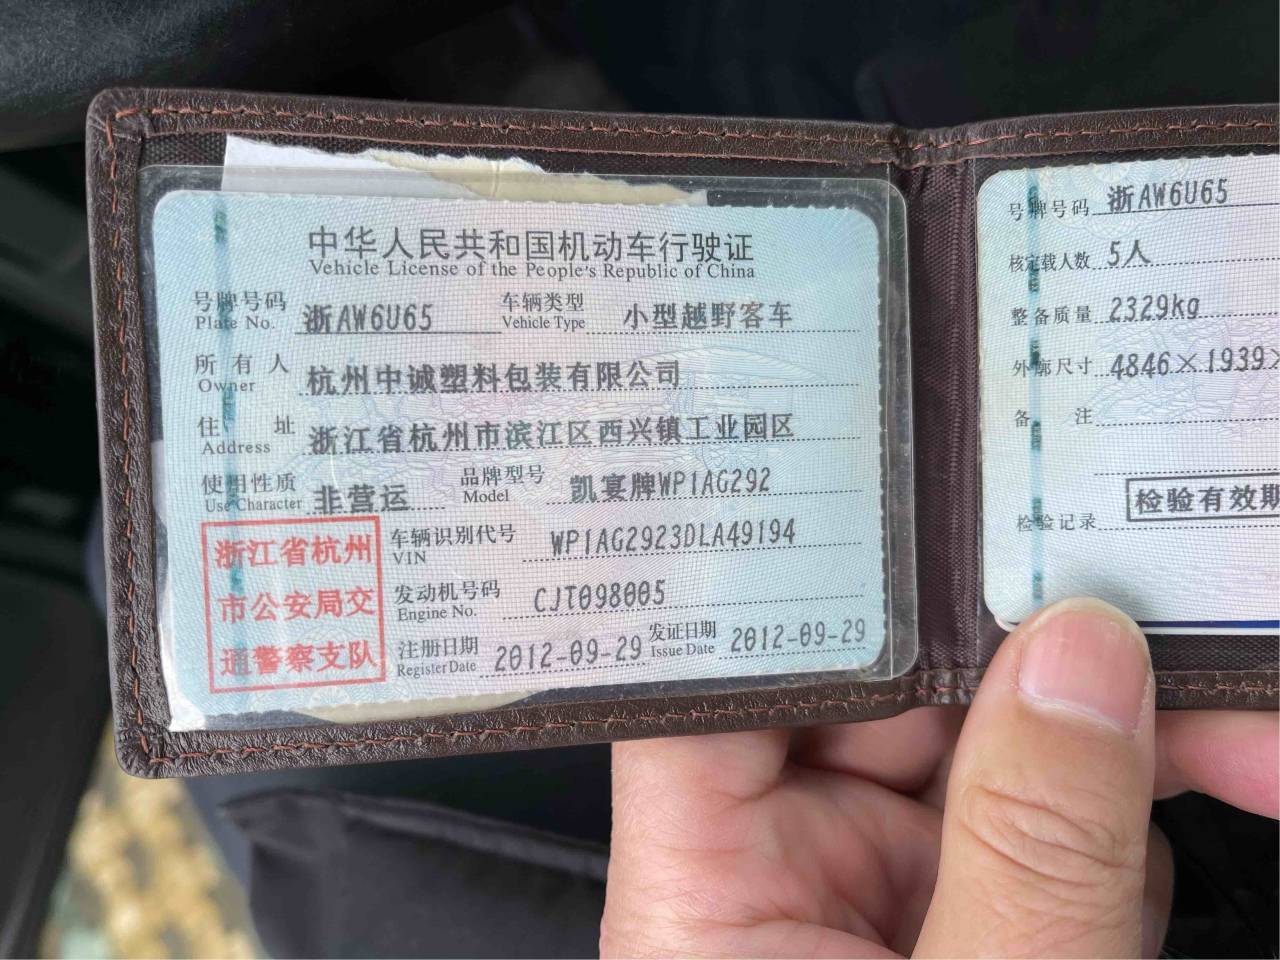 中华人民共和国机动车行驶证
Vehicle License of the People's Republic of China
号牌号码 浙AW6U65 车辆类型 小型越野客车
Plate No. Vehicle Type
所有人 杭州中诚塑料包装有限公司
Owner
住址 浙江省杭州市滨江区西兴镇工业园区
Address
使用性质 非营运 品牌型号 凯宴牌WP1AG292
Use Character Model
浙江省杭州
市公安局交
通警察支队
车辆识别代号 WP1AG2923DLA49194
VIN
发动机号码 CJT098005
Engine No.
注册日期 2012-09-29 发证日期 2012-09-29
Register Date Issue Date
号牌号码 浙AW6U65
核定载人数 5人
整备质量 2329kg
外廓尺寸 4846×1939×
备注
检验记录 检验有效期